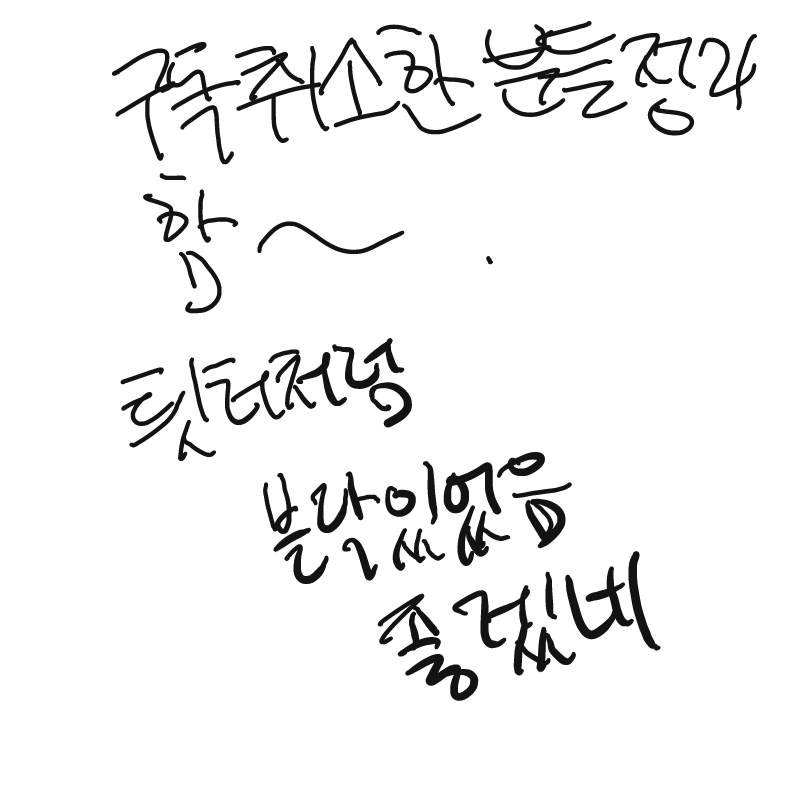 구독취소한분들정리
함~.
틧터처럼
블락있었음
좋겠네